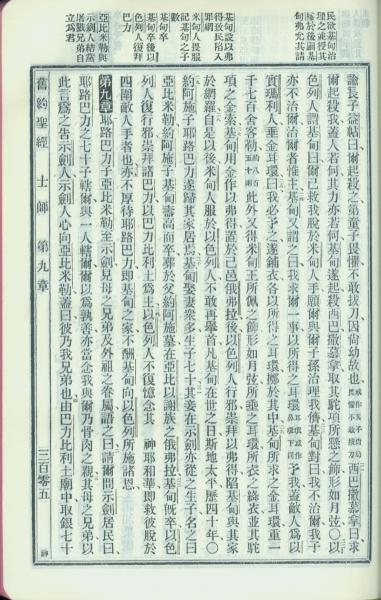 民欲基甸治
理之並授其
極於後嗣基
甸弗允其請
基甸設以弗
得致民陷入
罪網
米甸人畏服
記基甸之子
數
基甸卒
基甸卒後以
色列人復拜
巴力
亞比米勒與
示劍人結黨
弒眾兄弟自
立爲君
諭長子益帖曰爾起殺之第童子畏懼不敢拔刀因尙幼故也西巴撒慕拿曰求
爾起殺我蓋人若何其力亦若何基甸遂起殺西巴撒慕拿取其駝項所懸之飾形如月弦○以
色列人謂基甸曰爾已救我脫於米甸人手願爾與爾子孫治理我儕基甸對曰我不治爾我子
亦不治爾治爾者惟主基甸又謂之曰我求爾一事以所得之耳環予我蓋敵人爲以
實瑪利人垂金耳環曰我必予之遂鋪衣各以所得之耳環擲於其中基甸所求之金耳環重一
千七百舍客勒約八百五十兩此外又得米甸王所佩之飾形如月弦所垂之耳環所衣之絳衣並其駝
項之金索基甸用金作以弗得置於己邑俄弗拉後以色列人行邪崇拜以弗得陷基甸與其家
於網羅自是以後米甸人服於以色列人不敢再舉首凡基甸在世之日斯地太平歷四十年○
約阿施子耶路巴力遂歸其家居焉基甸娶妻衆多生子七十其妾在示劍亦從之生子名之曰
亞比米勒約阿施子基甸壽高而卒葬於父約阿施墓在亞比以謝族之俄弗拉基甸旣卒以色
列人復行邪崇拜諸巴力以巴力比利土爲主以色列人不復憶念其　神耶和華即救彼脫於
四圍敵人手者也亦不厚待耶路巴力即基甸之家不酬基甸向以色列所施諸恩
第九章 耶路巴力子亞比米勒至示劍見母之兄弟及外祖之眷屬語之曰請爾問示劍居民曰
耶路巴力之七十子轄爾與一人轄爾爾以爲孰善亦當念我與爾乃骨肉之親其母之兄弟以
此言爲之告示劍人示劍人心向亞比米勒蓋曰彼乃我兄弟也由巴力比利土廟中取銀七十
舊約聖經 士師 第九章 三百零五 神